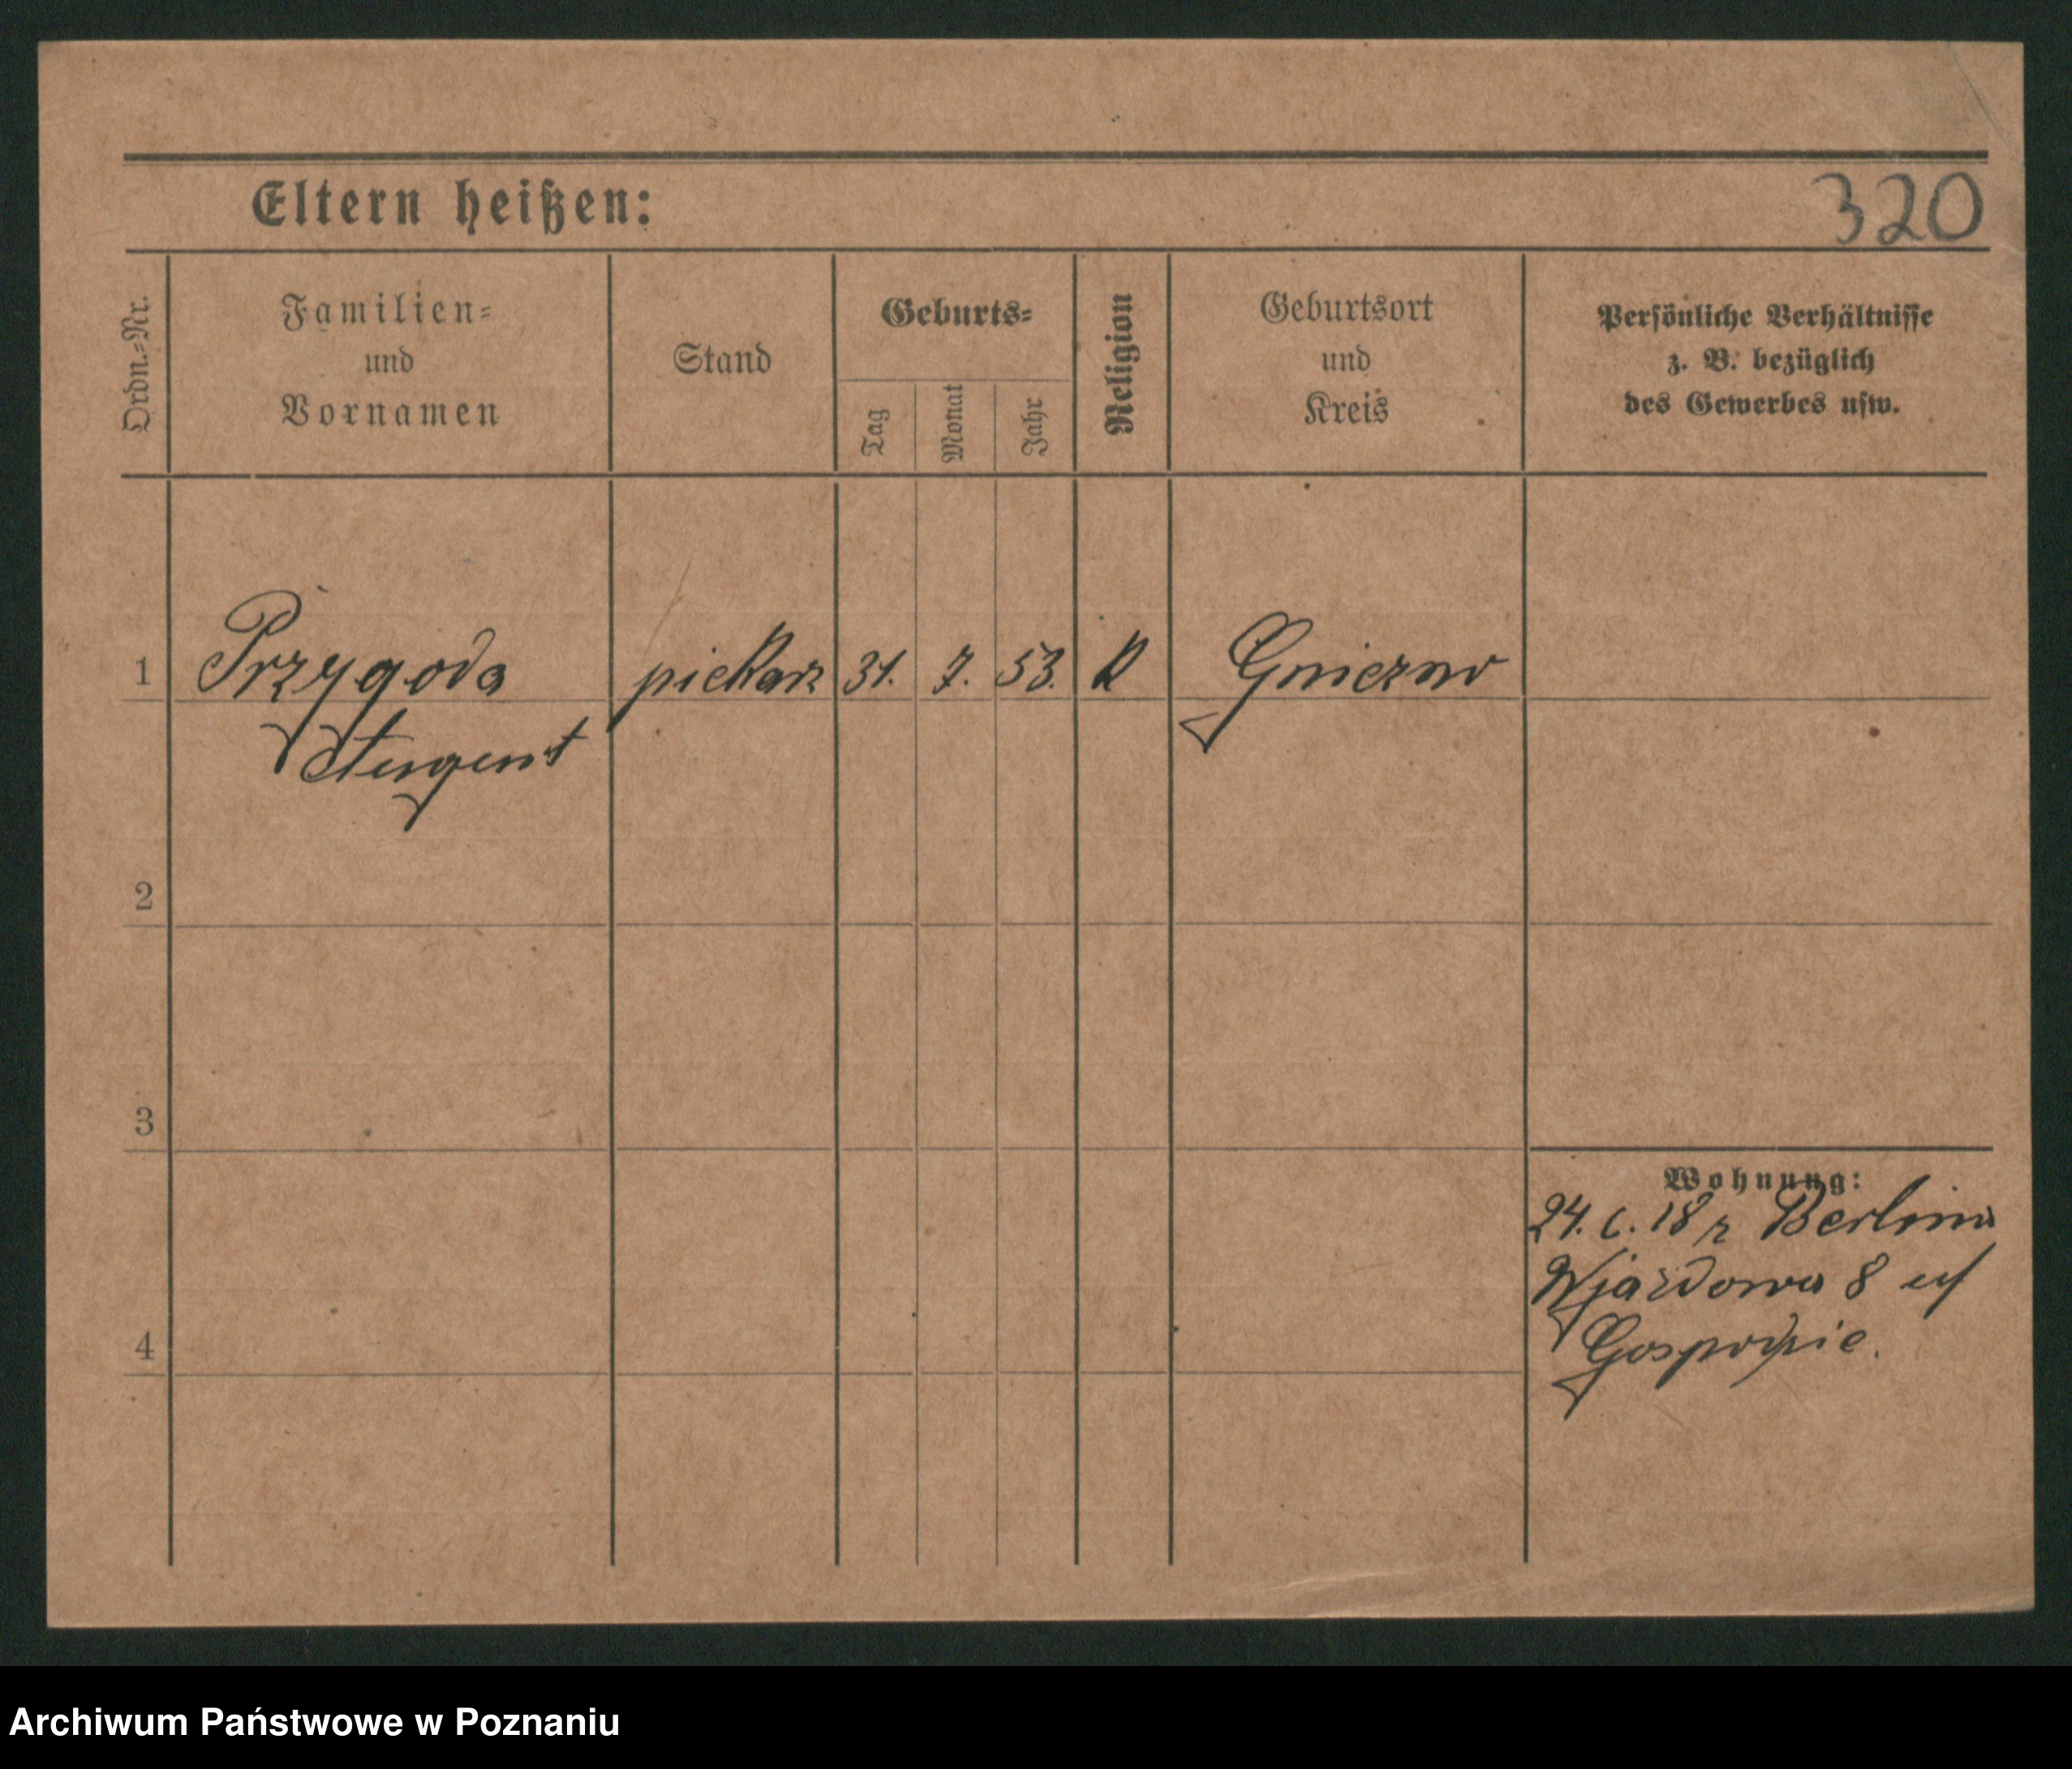 Eltern heißen:
320
Ordn.=Nr.
Familien=
und
Vornamen
Stand
Geburts=
Tag
Monat
Jahr
Religion
Geburtsort
und
Kreis
Persönliche Verhältnisse
z. B. bezüglich
des Gewerbes usw.
1 Przygoda piekarz 31. 7. 53. K Gniezno
2
3
4
Wohnung:
24. 6. 18 z Berlina
Wjazdowa 8 w
Gospodzie.
Archiwum Państwowe w Poznaniu